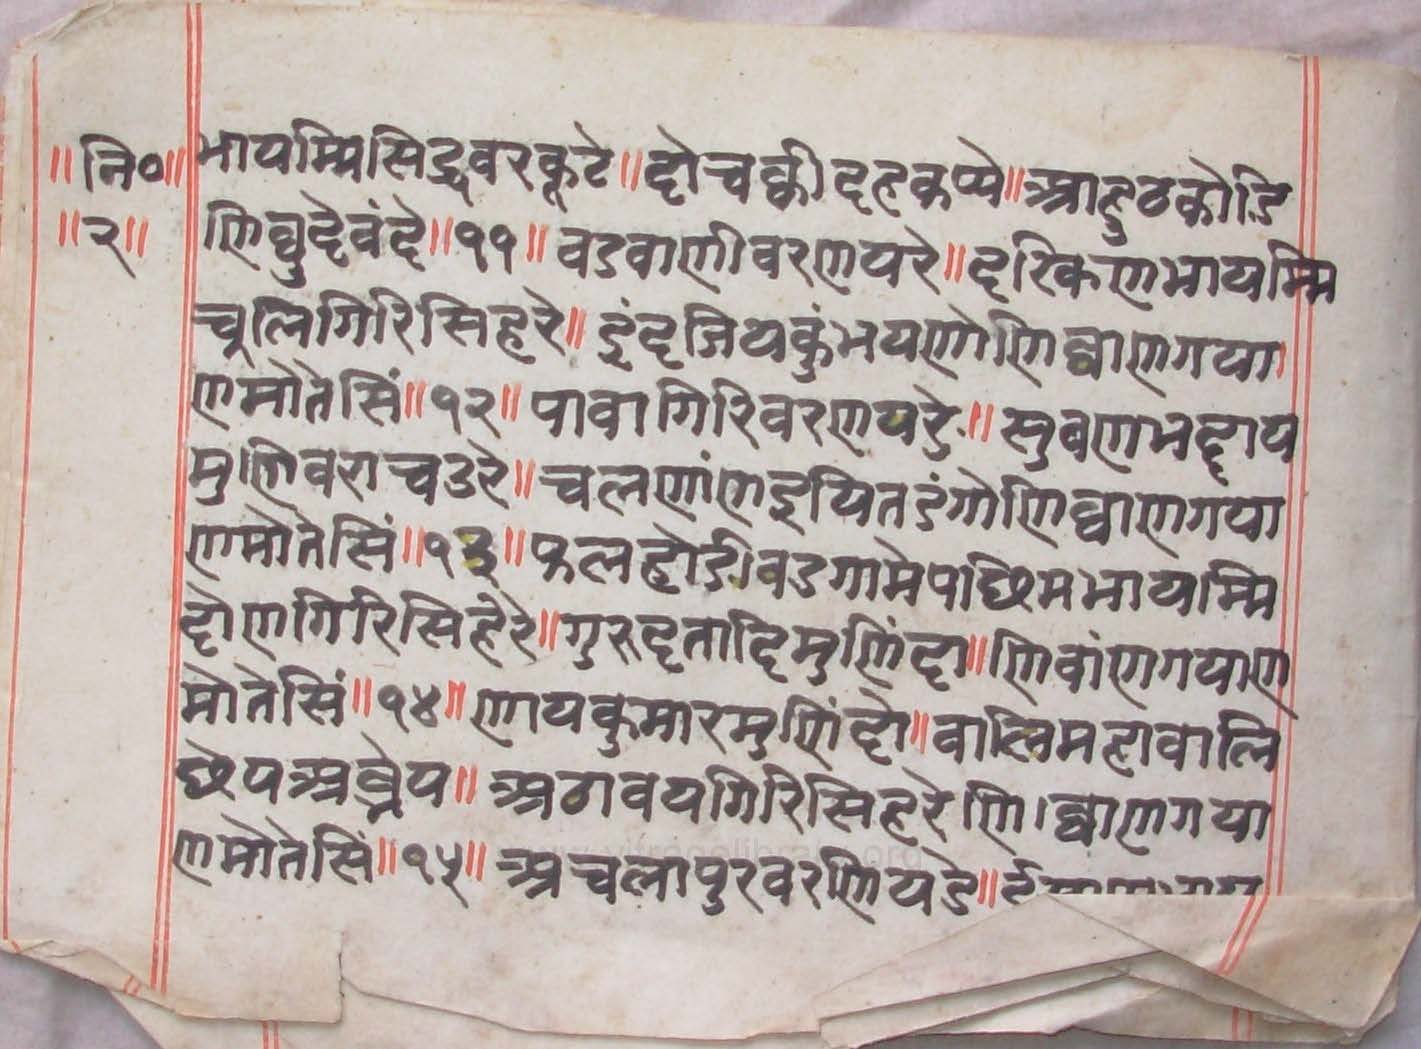 ॥नि०॥ भायम्मिसिद्धवरकूटे॥दोचक्कीदहकप्पे॥आहुठकोडि
॥२॥ णिव्वुदेवंदे॥११॥वडवाणीवरणयरे॥दरिकणभायम्मि
चूलिगिरिसिहरे॥इंदजियकुंभयणोणिव्वाणगया
णमोतेसिं॥१२॥पावागिरिवरणयडे॥सुवणभद्दाय
मुणिवराचउरे॥चलणांणइयितडंगोणिव्वाणगया
णमोतेसिं॥१३॥फलहोडीवडगामेपाछिमभायम्मि
दोणगिरिसिहेरे॥गुरुदत्तादिमुणिंदा॥णिवांणगयाण
मोतेसिं॥१४॥णायकुमारमुणिंदो॥वालिमहावालि
छेपअव्नेय॥अठावयगिरिसिहरेणिव्वाणगया
णमोतेसिं॥१५॥अचलापुरवरणियडे॥
www.vitragelibrary.org